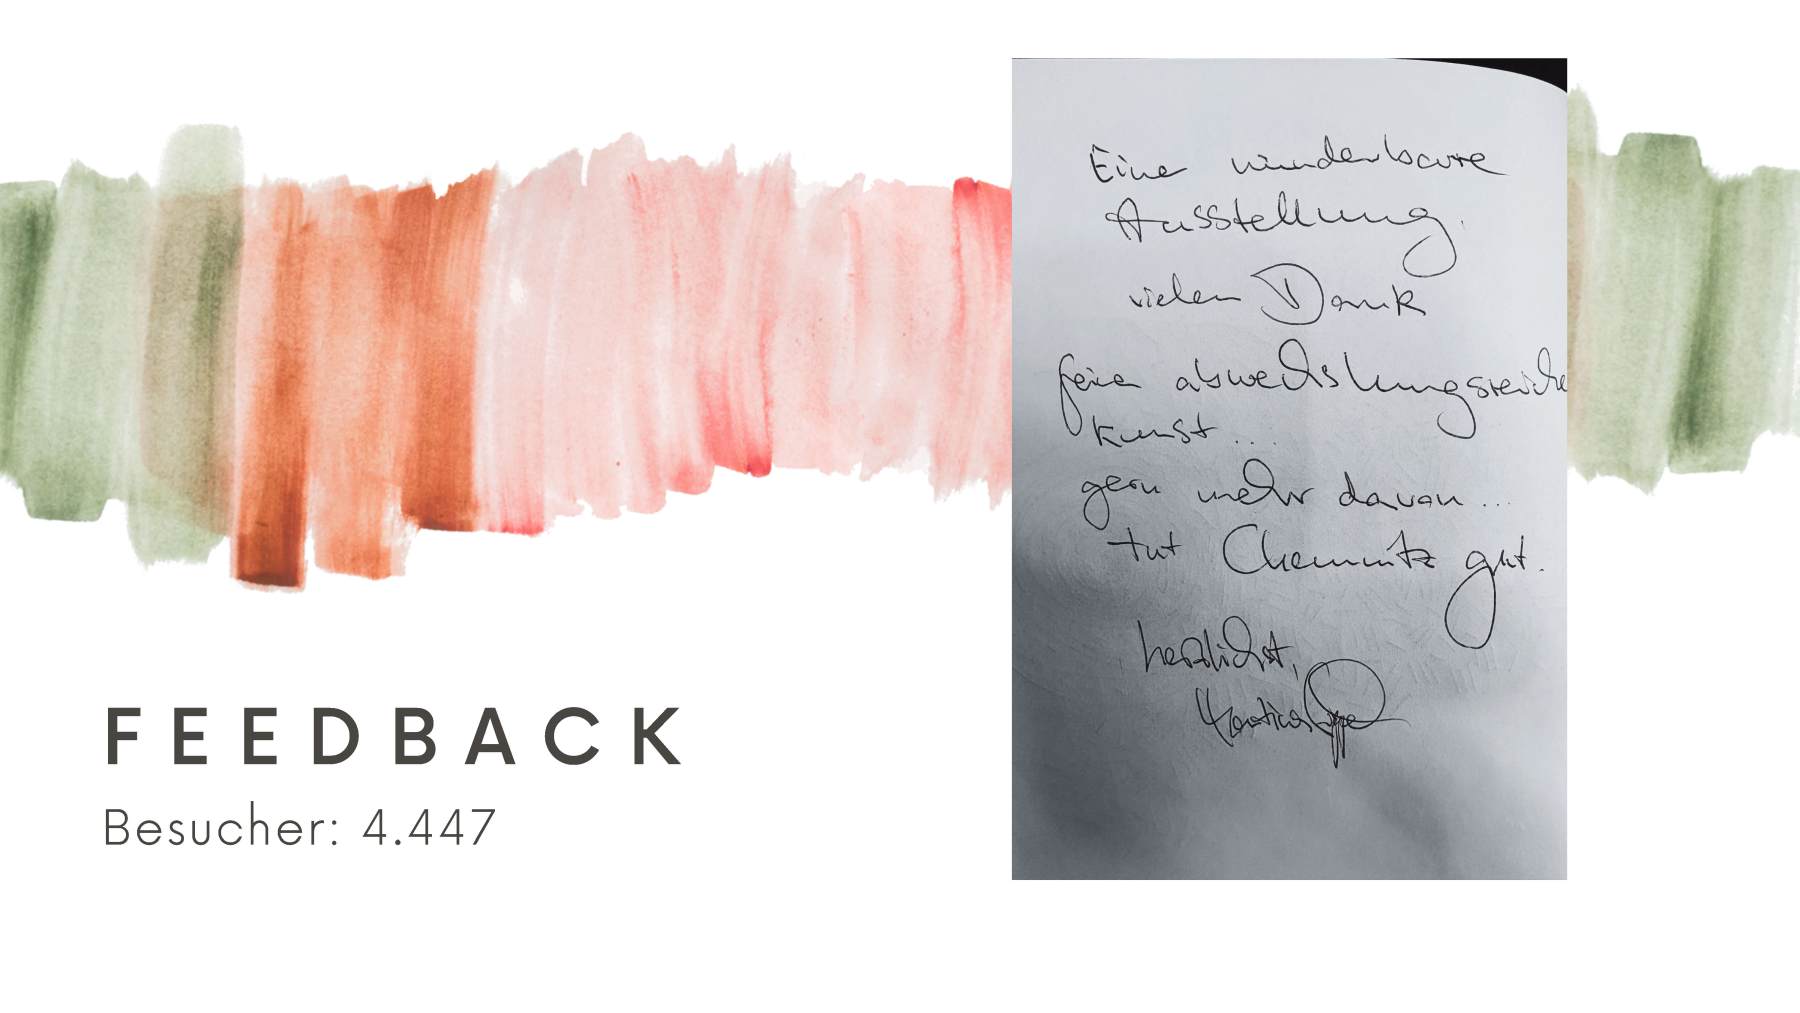 FEEDBACK
Besucher: 4.447
Eine wunderbare
Ausstellung.
vielen Dank
feine abwechslungsreiche
Kunst...
gern mehr davon...
tut Chemnitz gut.
herzlichst,